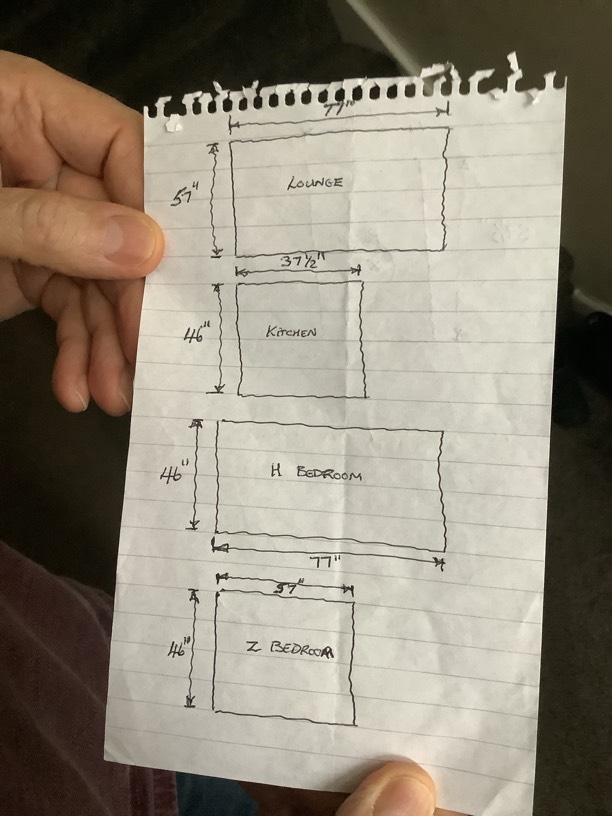 77"
57"
LOUNGE
37 1/2"
46"
KITCHEN
46"
H BEDROOM
77"
57"
46"
Z BEDROOM